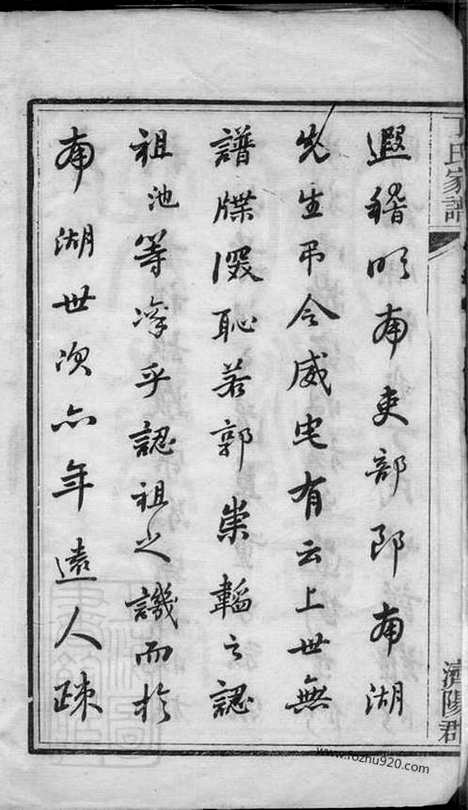 丁氏家譜
濟陽郡
遐稽明南吏部郎南湖
先生弔令威宅有云上世無
譜牒恥若郭崇韜之認
祖池等凜乎認祖之譏而於
南湖世次亦年遠人疎
www.fozhu920.com